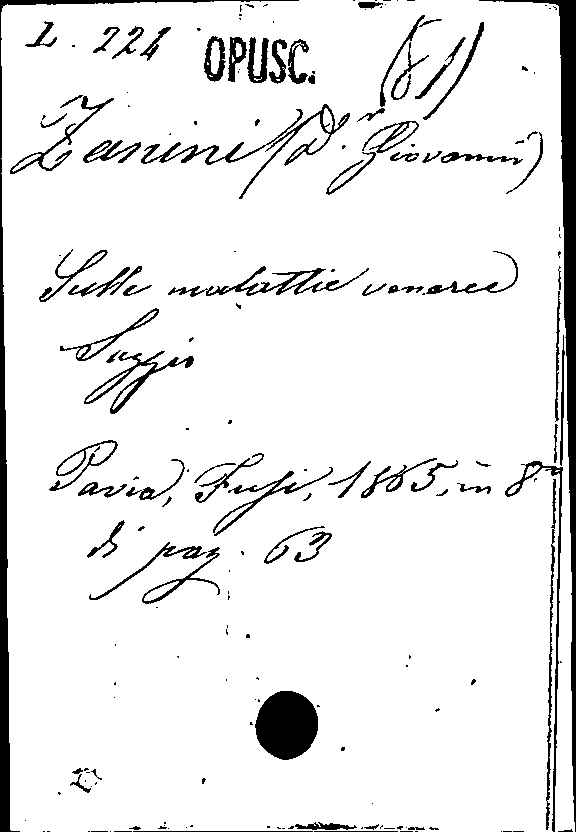 L. 224 OPUSC. (81)
Zanini (D.r Giovanni)
Sulle malattie veneree
Saggio
Pavia, Fusi, 1865, in 8.o
di pag. 63